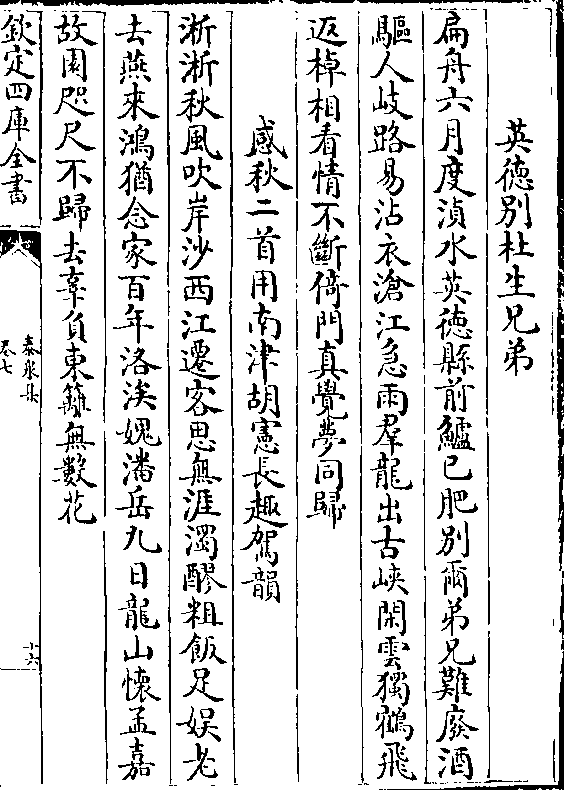 英德別杜生兄弟
扁舟六月度湞水英德縣前鱸已肥別爾弟兄難廢酒
驅人岐路易沾衣滄江急雨羣龍出古峽閑雲獨鶴飛
返棹相看情不斷倚門真覺夢同歸
感秋二首用南津胡憲長趣駕韻
淅淅秋風吹岸沙西江遷客思無涯濁醪粗飯足娱老
去燕來鴻猶念家百年洛涘媿潘岳九日龍山懷孟嘉
故園咫尺不歸去辜負東籬無數花
欽定四庫全書
泰泉集
卷七
十六